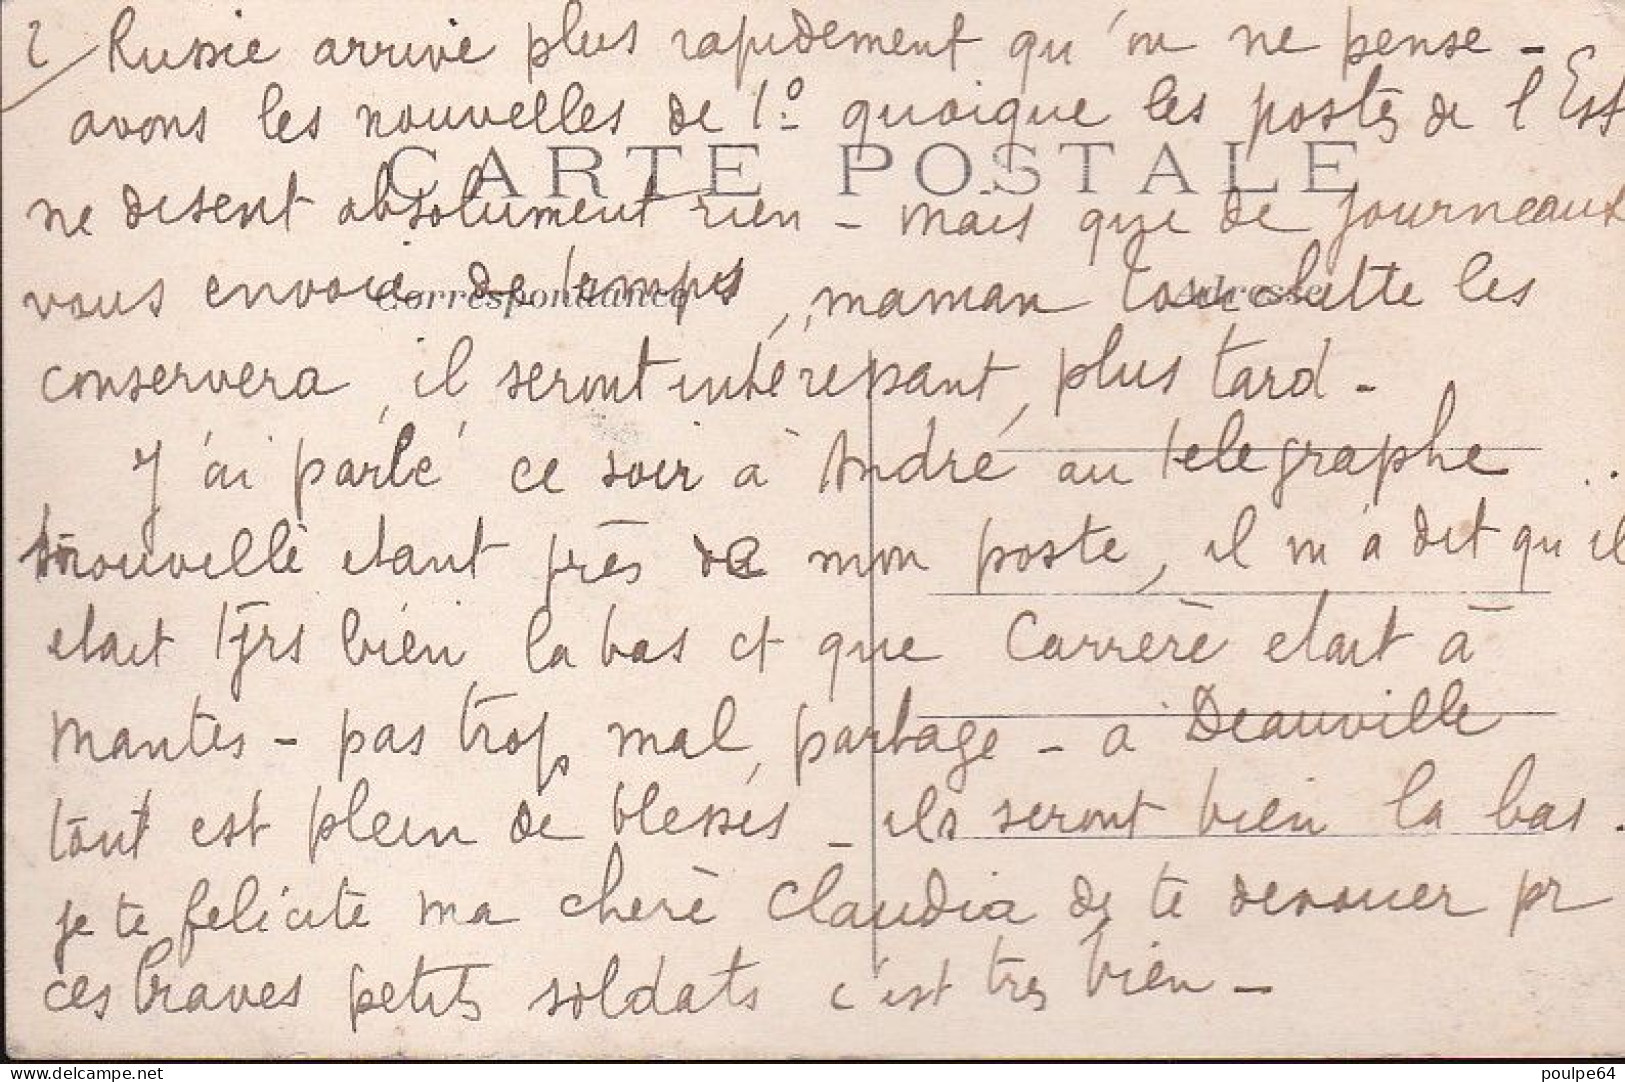 2/ Russie arrive plus rapidement qu'on ne pense -
avons les nouvelles de 1º quoique les postes de l'Est
CARTE POSTALE
ne disent absolument rien - mais que de journeaux
vous envoie de temps, maman les
Correspondance
Adresse
conservera, il seront intéressant, plus tard -
J'ai parlé ce soir à André au telegraphe ..
trouville etant près de mon poste, il m'a dit qu'il
etait tjrs bien, la bas et que Carrère etait à
Mantes - pas trop mal, partage - a Deauville
tout est plein de blessés - ils seront bien la bas.
je te felicite ma chere Claudia de te devouer pr
ces braves petits soldats c'est tres bien -
www.delcampe.net
poulpe64